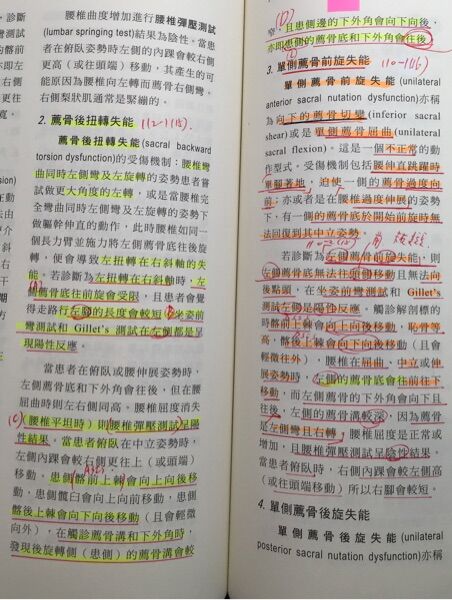 腰椎曲度增加進行腰椎彈壓測試
(lumbar springing test)結果為陰性。當患
者在俯臥姿勢時左側的內踝會較右側
更高（或往頭端）移動，其產生的可
能原因為腰椎向左轉而薦骨右側彎。
右側梨狀肌通常是緊繃的。
2. 薦骨後扭轉失能
薦骨後扭轉失能(sacral backward
torsion dysfunction)的受傷機制：腰椎彎
曲同時左側彎及左旋轉的姿勢患者嘗
試做更大角度的左轉，或是當腰椎完
全彎曲同時左側彎及左旋轉的姿勢下
做軀幹伸直的動作，此時腰椎如同一
個長力臂並施力將左側薦骨底往後旋
轉，便會導致左扭轉在右斜軸的失
能。若診斷為左扭轉在右斜軸時，左
側薦骨底往前旋會受限，且患者會覺
得走路行左腳的長度會較短。坐姿前
彎測試和 Gillet's 測試在左側都是呈
現陽性反應。
當患者在俯臥或腰伸展姿勢時，
左側薦骨底和下外角會往後，但在腰
屈曲時則左右側同高。腰椎屈度消失
（腰椎平坦時）則腰椎彈壓測試呈陽
性結果，當患者俯臥在中立姿勢時，
左側內踝會較右側更往上（或頭端）
移動，患側髂前上棘會向上向後移
動，患側髖臼會向上向前移動，患側
髂後上棘會向下向後移動（且會輕微
向外），在觸診薦骨溝和下外角時，
發現後旋轉側（患側）的薦骨溝會較
窄，且患側邊的下外角會向下向後，
亦即患側的薦骨底和下外角會往後。
3. 單側薦骨前旋失能
單側薦骨前旋失能(unilateral
anterior sacral nutation dysfunction)亦稱
為向下的薦骨切變(inferior sacral
shear)或是單側薦骨屈曲(unilateral
sacral flexion)。這是一個不正常的動
作型式。受傷機制包括腰伸直跳躍時
單腳著地，迫使一側的薦骨過度向
前；亦或者是在腰椎過度伸展的姿勢
下，有一側的薦骨底於開始前旋時無
法回復到其中立姿勢。
若診斷為左側薦骨前旋失能，則
左側薦骨底無法往頭側移動且無法向
後點頭，在坐姿前彎測試和 Gillet's
測試左側是陽性反應。觸診解剖標的
時髂前上棘會向上向後移動，恥骨等
高，髂後上棘會向下向後移動（且會
輕微往外），腰椎在屈曲、中立或伸
展姿勢時，左側的薦骨底會往前往下
移動，而左側薦骨的下外角會向下且
往後，左側的薦骨溝較深，因為薦骨
是左側彎且右轉，腰椎屈度是正常或
增加，且腰椎彈壓測試呈陰性結果。
當患者俯臥時，右側內踝會較左側高
（或往頭端移動）所以右腳會較短。
4. 單側薦骨後旋失能
單側薦骨後旋失能(unilateral
posterior sacral nutation dysfunction)亦稱